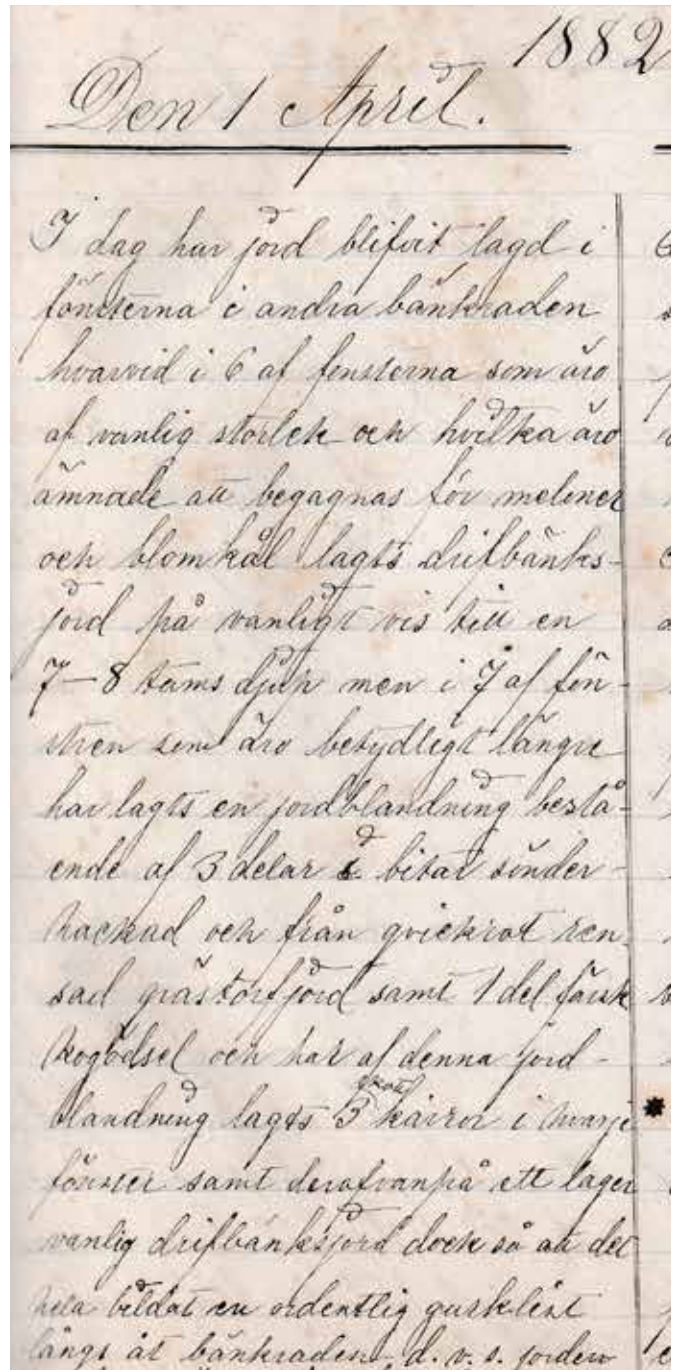 1882
Den 1 April.
I dag har jord blifvit lagd i
fönsterna i andra bänkraden
hvarvid i 6 af fensterna som äro
af vanlig storlek och hvilka äro
ämnade att begagnas för meloner
och blomkål lagts drifbänks-
jord på vanligt vis till en
7–8 tums djup men i 7 af fön-
stren som äro betydligt längre
har lagts en jordblandning bestå-
ende af 3 delar i bitar sönder-
hackad och från qvickrot ren-
sad grästorfjord samt 1 del färsk
kogödsel och har af denna jord-
blandning lagts 3 kärror i hvarje
fönster samt derofvanpå ett lager
vanlig drifbänksjord dock så att det
hela bildat en ordentlig gurklist
längs åt bänkraden, d. v. s. jorden